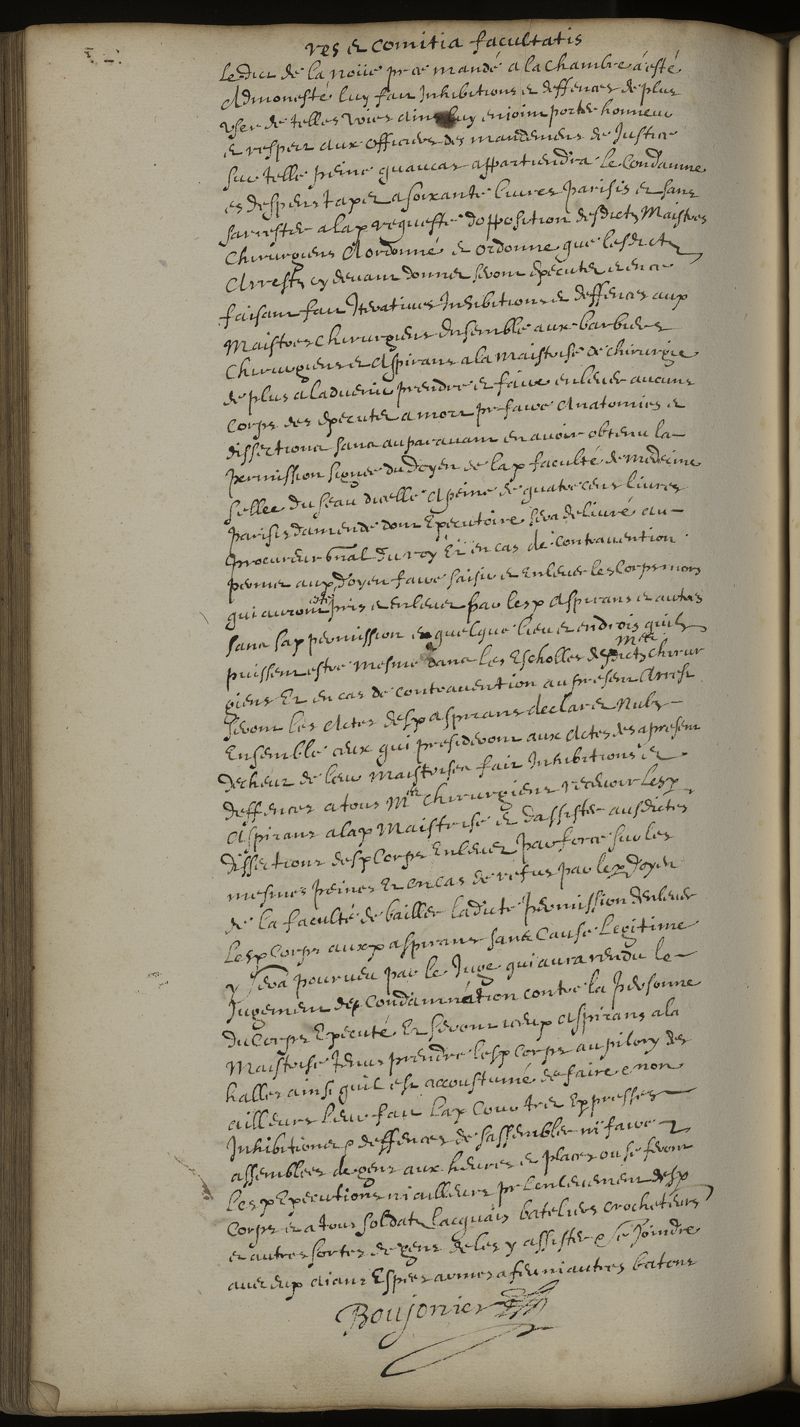 res et comitia facultatis
Ledict de la noüe pr ce mandé a la chambre a esté
Admonesté luy faict Inhibitions et deffences de plus
User de telles voies ains luy enjoinct porter honneur
et respect aux officiers des mandemens de Justice
sur telle peine quau cas appartiendra le Condamne
es despens taxez a soixante livres parisis et sans
sarrester a lap requeste dopposition desdicts Maistres
Chirurgiens A ordonné et ordonne que lesdicts
Arrests cy devant donnez seront executez et en ce
faisant faict Iteratives Inhibitions et deffences aux
Maistres chirurgiens Ensemble aux barbiers
Chirurgiens et Aspirans a la maistrise de chirurgie
de plus a ladvenir prendre et faire enlever aucuns
Corps des executez a mort pr faire Anatomies et
dissections sans auparavant en avoir obtenu la
permission signee du doyen de lap faculté de medecine
sellee du seau dicelle a peine de quatre cens livres
parisis damende dont Executoire sera delivré au
procureur gnal du roy Et en cas de contravention
permet aup doyen faire saisir et Enlever les Corps mors
qui auront esté pris et enlevez par lesp Aspirans et autres
sans sap permission en quelque lieu et endrois quilz
puissent estre mesme dans les Escholles desdicts mtres chirur
giens Et en cas de contravention au present Arrest
seront les Actes desp aspirans declarez Nuls
Ensemble ceux qui presideront aux Actes des a present
decheuz de leur maistrise faict Inhibitions et
deffences a tous Mtres Chirurgiens recevoir lesp
Aspirans a lap Maistrise et dassister ausdictes
dissections desp Corps Enlevez par force sur les
mesmes peines Et en cas de refus par lep doyen
de la faculté de bailler ladicte permission denlever
lesp Corps auxp aspirans sans Cause legitime
y sera pourveu par le Juge qui aura rendu le
Jugement de Condamnation contre la personne
du Corps Executé Et seront iceux Aspirans a la
Maistrise tenus prendre lesp Corps au pilory des
halles ainsi quil est accoustumé de faire et non
ailleurs leur faict lap Cour tres Expresses
Inhibitions et deffences de sassembler ni faire
assemblees de gens aux heures et places ou se feront
lesp Executions ni ailleurs pr lenlevement desp
Corps et a tous soldats lacquais bateliers crocheteurs
et autres sortes de gens de les y assister et se Joindre
avec eux aians Espees armes a feu ni autres batons
Boujonier